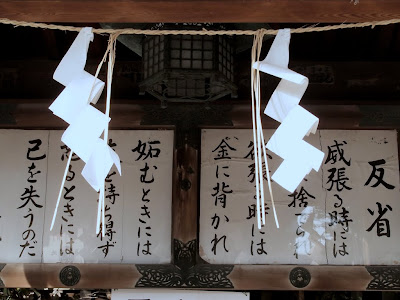 反省
威張る時には
捨てられ
ときには
金に背かれ
妬むときには
を持ち得ず
るときには
己を失うのだ